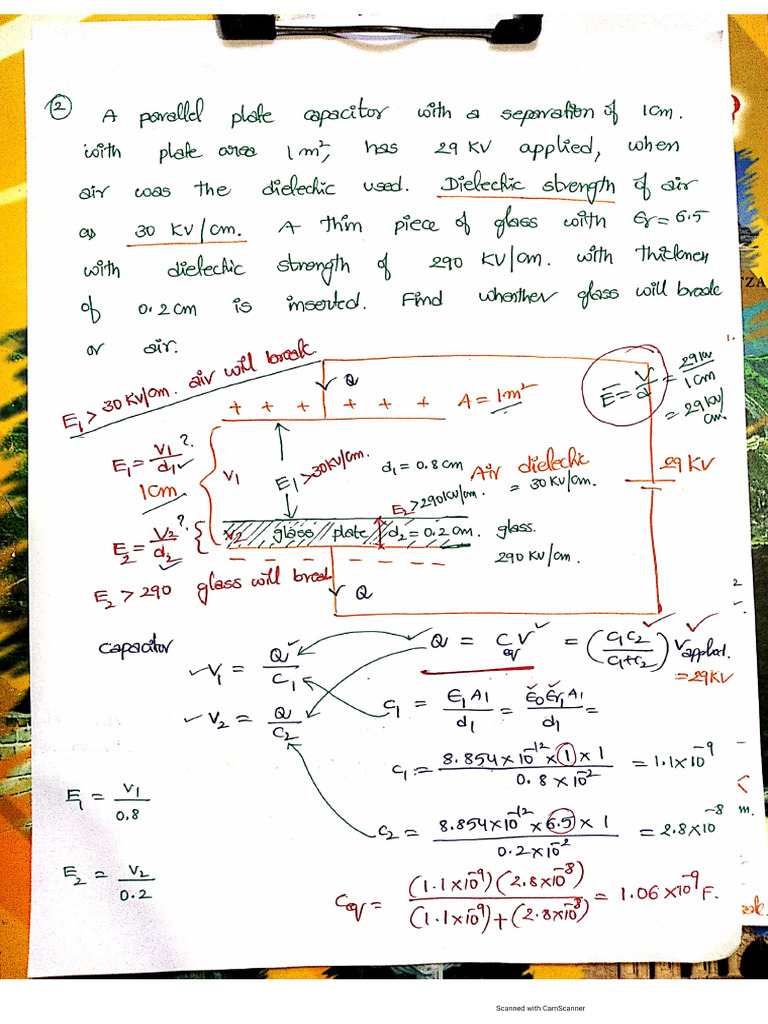 ② A parallel plate capacitor with a separation of 1cm.
with plate area 1m², has 29 KV applied, when
air was the dielectric used. Dielectric strength of air
as 30 KV/cm. A thin piece of glass with Er = 6.5
with dielectric strength of 290 KV/cm. with thickness
of 0.2cm is inserted. Find whether glass will break
or air.
E₁ > 30KV/cm. air will break.
Q
+ + + + + +
A = 1m²
E = V/d = 29KV/1cm
= 29KV/cm.
E₁ = V₁/d₁ ?
1cm
V₁
E₁ > 30KV/cm.
d₁ = 0.8cm
Air dielectric
= 30KV/cm.
29 KV
E₂ > 290KV/cm.
E₂ = V₂/d₂ ?
V₂ glass plate d₂ = 0.2cm. glass.
290 KV/cm.
E₂ > 290 glass will break
Q
capacitor
V₁ = Q/C₁
Q = Ceq V = (C₁C₂/C₁+C₂) Vapplied.
= 29KV
V₂ = Q/C₂
C₁ = E₁A₁/d₁ = E₀Er₁A₁/d₁ =
C₁ = 8.854×10⁻¹² × 1 × 1 / 0.8×10⁻² = 1.1×10⁻⁹
E₁ = V₁/0.8
C₂ = 8.854×10⁻¹² × 6.5 × 1 / 0.2×10⁻² = 2.8×10⁻⁸
E₂ = V₂/0.2
Ceq = (1.1×10⁻⁹)(2.8×10⁻⁸) / (1.1×10⁻⁹)+(2.8×10⁻⁸) = 1.06×10⁻⁹ F.
Scanned with CamScanner